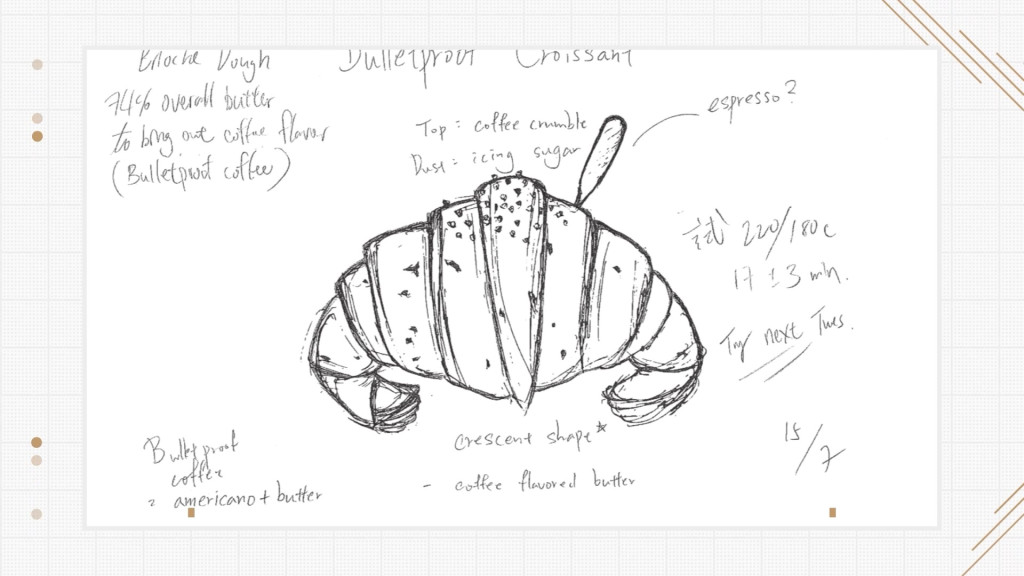 Brioche Dough
Bulletproof Croissant
74% overall butter
to bring out coffee flavor
(Bulletproof coffee)
Top: coffee crumble
Dust: icing sugar
espresso?
試 220/180c
17 ± 3 min.
Try next Tues.
crescent shape*
- coffee flavored butter
Bulletproof
coffee
= americano + butter
15/7